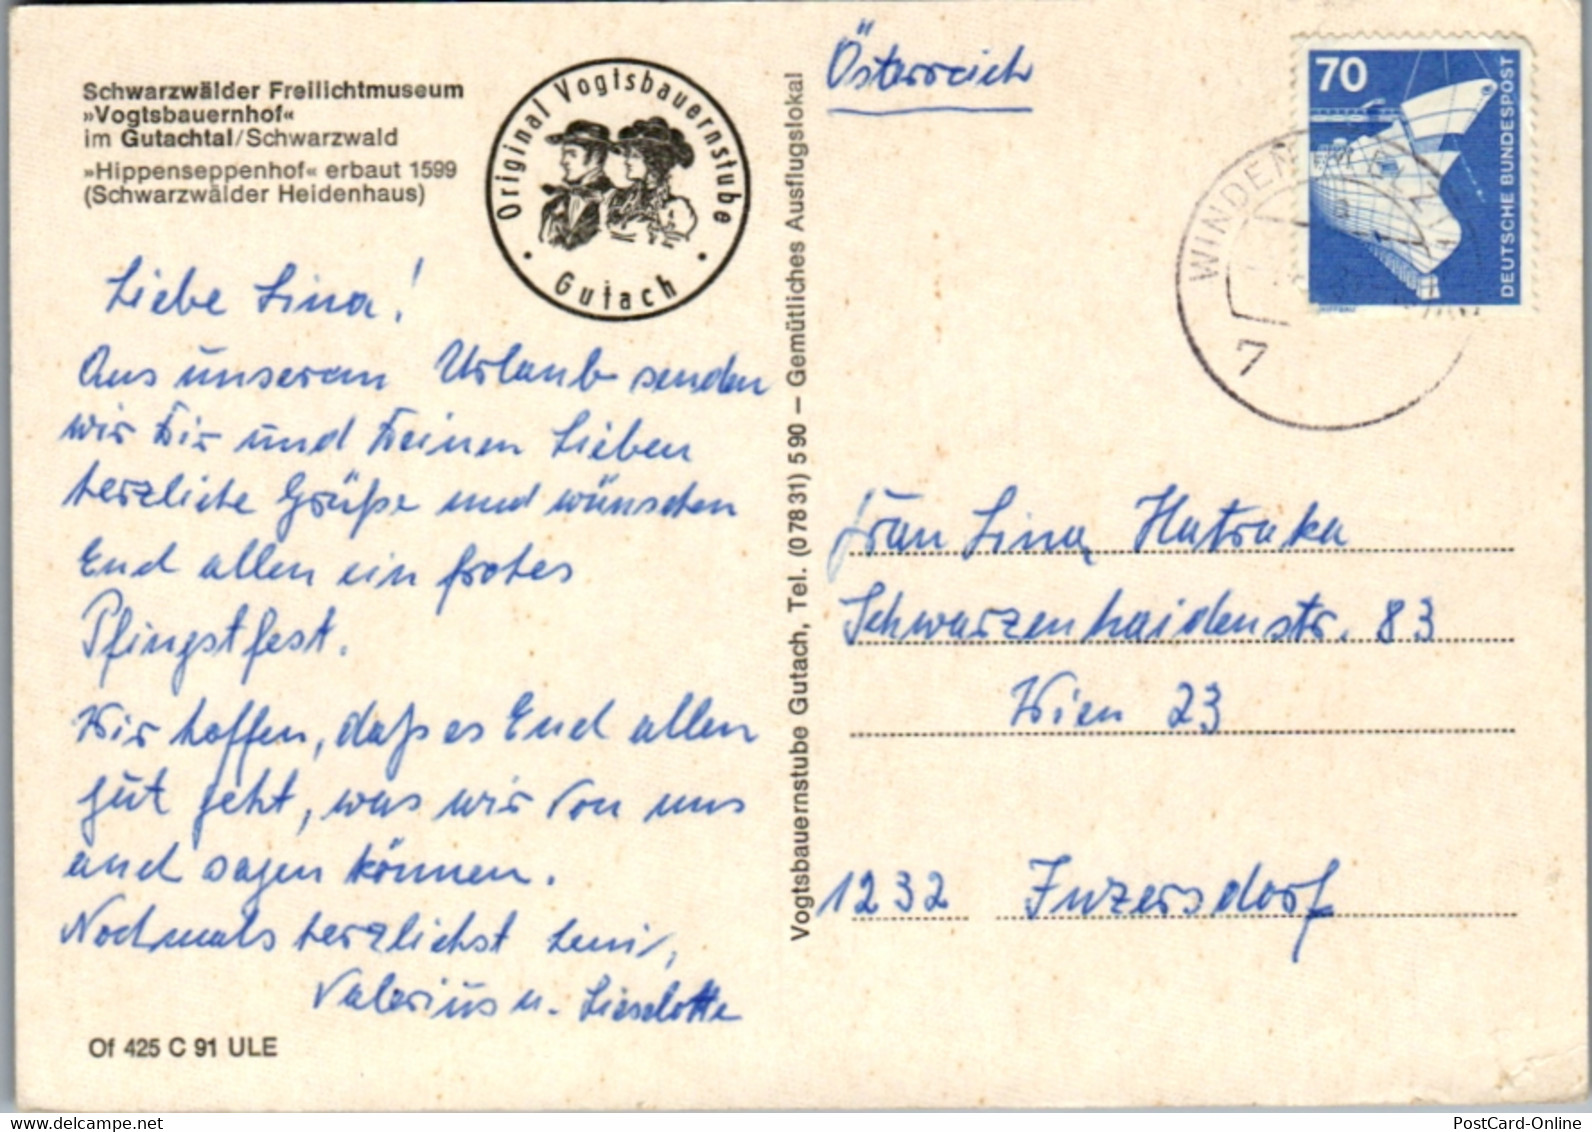 Schwarzwälder Freilichtmuseum
»Vogtsbauernhof«
im Gutachtal/Schwarzwald
»Hippenseppenhof« erbaut 1599
(Schwarzwälder Heidenhaus)
Original Vogtsbauernstube
· Gutach ·
Liebe Lina!
Aus unseren Urlaub senden
wir Dir und Deinen Lieben
herzliche Grüße und wünschen
Euch allen ein frohes
Pfingstfest.
Wir hoffen, daß es Euch allen
gut geht, was wir von uns
auch sagen können.
Nochmals herzlichst Leni,
Valerius u. Lieselotte
Of 425 C 91 ULE
Vogtsbauernstube Gutach, Tel. (07831) 590 – Gemütliches Ausflugslokal
Österreich
70
DEUTSCHE BUNDESPOST
WINDEN
7
Frau Lina Hatraka
Schwarzenhaidenstr. 83
Wien 23
1232 Inzersdorf
PostCard-Online